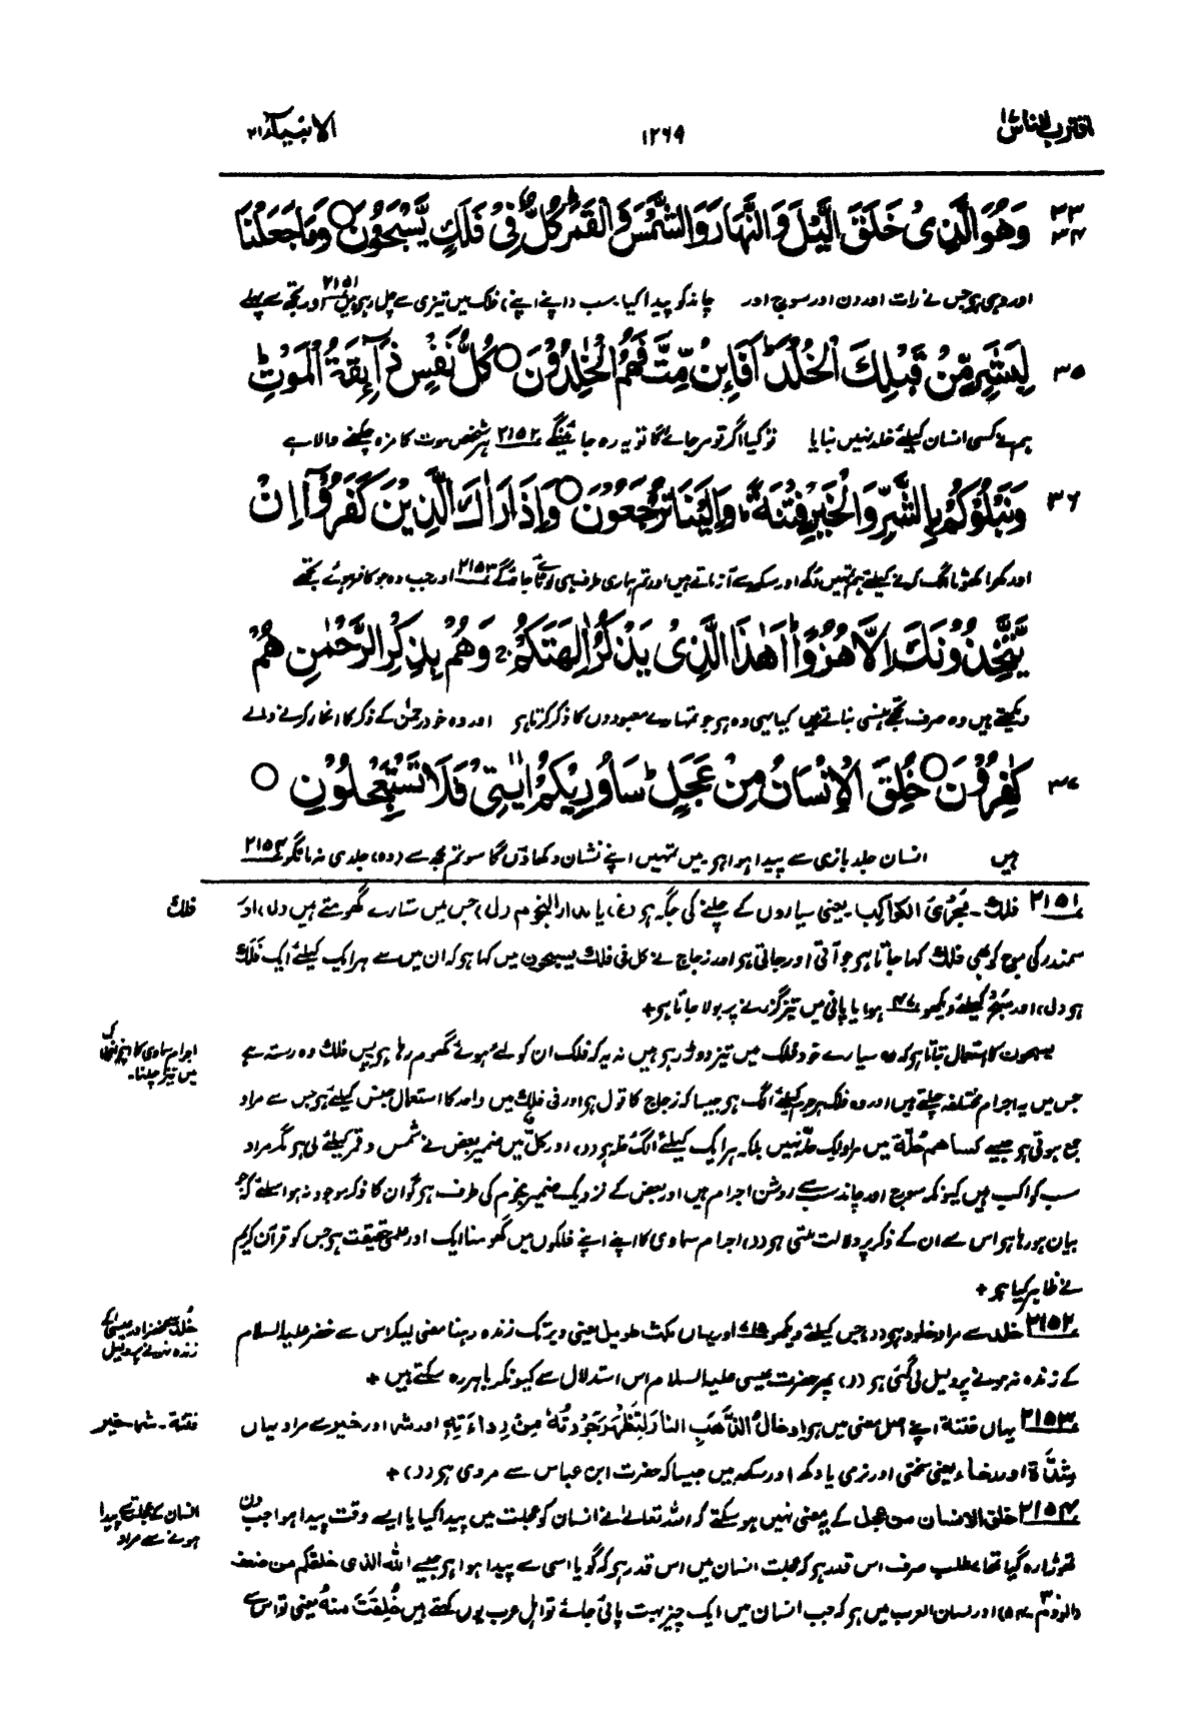 اقترب للناس ١٧
١٢٦٩
الانبیآء ٢١
٣٣ ٣٤ وَهُوَ الَّذِىْ خَلَقَ الَّيْلَ وَالنَّهَارَ وَالشَّمْسَ وَالْقَمَرَ ؕ كُلٌّ فِىْ فَلَكٍ يَّسْبَحُوْنَ ○ وَمَا جَعَلْنَا
اور وہی ہو جس نے رات اور دن اور سورج اور چاند کو پیدا کیا۔ سب (اپنے اپنے) فلک میں تیزی سے چل رہی ہیں ٢١٥١ اور تجھ سے پہلے
٣٥ لِبَشَرٍ مِّنْ قَبْلِكَ الْخُلْدَ ؕ اَفَا۟ئِنْ مِّتَّ فَهُمُ الْخٰلِدُوْنَ ○ كُلُّ نَفْسٍ ذَآئِقَةُ الْمَوْتِ ؕ
ہم نے کسی انسان کیلئے خلد نہیں بنایا تو کیا اگر تو مر جائے گا تو یہ رہ جائینگے ٢١٥٢ ہر شخص موت کا مزہ چکھنے والا ہے
٣٦ وَنَبْلُوْكُمْ بِالشَّرِّ وَالْخَيْرِ فِتْنَةً ؕ وَاِلَيْنَا تُرْجَعُوْنَ ○ وَاِذَا رَاٰكَ الَّذِيْنَ كَفَرُوْٓا اِنْ
اور کھرا کھوٹا الگ کرنے کیلئے ہم تمہیں دکھ اور سکھ سے آزماتے ہیں اور تم ہماری طرف ہی لوٹائے جاؤگے ٢١٥٣ اور جب وہ جو کافر ہوئے تجھے
يَّتَّخِذُوْنَكَ اِلَّا هُزُوًا ؕ اَهٰذَا الَّذِىْ يَذْكُرُ اٰلِهَتَكُمْ ۚ وَهُمْ بِذِكْرِ الرَّحْمٰنِ هُمْ
دیکھتے ہیں وہ صرف تجھے ہنسی بناتے ہیں کیا یہی وہ ہو جو تمہارے معبودوں کا ذکر کرتا ہو اور وہ خود رحمٰن کے ذکر کا انکار کرنے والے
٣٧ كٰفِرُوْنَ ○ خُلِقَ الْاِنْسَانُ مِنْ عَجَلٍ ؕ سَاُورِيْكُمْ اٰيٰتِىْ فَلَا تَسْتَعْجِلُوْنِ ○
ہیں انسان جلد بازی سے پیدا ہوا ہو۔ میں تمہیں اپنے نشان دکھاؤں گا سو تم مجھ سے (وہ) جلدی نہ مانگو ٢١٥٤
فلک
٢١٥١ فلک۔ مَجْرَی الکواکب۔ یعنی سیاروں کے چلنے کی جگہ ہو (غ) یا مدار النجوم (ل) جس میں ستارے گھومتے ہیں (ل) اور
سمندر کی موج کو بھی فلک کہا جاتا ہو جو آتی اور جاتی ہو اور زجاج نے کل فی فلک یسبحون میں کہا ہو کہ ان میں سے ہر ایک کیلئے ایک فلک
ہو (ل) اور سَبْح کیلئے دیکھو ہوا یا پانی میں تیز گزرنے پر بولا جاتا ہو+
اجرام سماوی کا اپنے فلک میں تیز چلنا۔
یسبحون کا استعمال بتاتا ہو کہ سیارے خود فلک میں تیز دوڑ رہی ہیں نہ یہ کہ فلک ان کو لئے ہوئے گھوم رہا ہو پس فلک وہ رستہ ہے
جس میں یہ اجرام مختلفہ چلتے ہیں اور وہ فلک ہر جرم کیلئے الگ ہو جیسا کہ زجاج کا قول ہو اور فی فلک میں واحد کا استعمال جنس کیلئے ہو جس سے مراد
جمع ہوتی ہو جیسے کساھم حلّة میں مراد ایک حلّہ نہیں بلکہ ہر ایک کیلئے الگ حلہ ہو (د) اور کلّ میں ضمیر بعض نے شمس و قمر کیلئے لی ہو مگر مراد
سب کواکب ہیں کیونکہ سورج اور چاند سب سے روشن اجرام ہیں اور بعض کے نزدیک ضمیر نجوم کی طرف ہو گو ان کا ذکر موجود نہ ہو اسلئے کہ جو
بیان ہو رہا ہو اس سے ان کے ذکر پر دلالت ملتی ہو (د) اجرام سماوی کا اپنے اپنے فلکوں میں گھومنا ایک اور علمی حقیقت ہو جس کو قرآن کریم
نے ظاہر کیا ہو+
٢١٥٢ خلد سے مراد خلود ہو (د) جس کیلئے دیکھو اور یہاں مکث طویل یعنی دیر تک زندہ رہنا معنی لیکر اس سے خضر علیہ السلام
کے زندہ نہ ہونے پر دلیل لی گئی ہو (د) پھر حضرت عیسیٰ علیہ السلام اس استدلال سے کیونکر باہر رہ سکتے ہیں+
فتنة۔ شر۔ خیر
٢١٥٣ یہاں فتنة اپنے اصل معنی میں ہو ادخالُ الذَّهَبِ النارَ لِتَظْهَرَ جَوْدَتُهٗ مِنْ رِداءَتِهٖ اور شر اور خیر سے مراد یہاں
شِدَّة اور رخاء یعنی سختی اور نرمی یا دکھ اور سکھ ہیں جیسا کہ حضرت ابن عباس سے مروی ہو (د)+
انسان کے عجلت سے پیدا ہونے سے مراد
٢١٥٤ خلق الانسان من عجل کے یہ معنی نہیں ہو سکتے کہ اللہ تعالیٰ نے انسان کو عجلت میں پیدا کیا یا ایسے وقت پیدا ہوا جب دن
تھوڑا رہ گیا تھا مطلب صرف اس قدر ہو کہ عجلت انسان میں اس قدر ہو کہ گویا اسی سے پیدا ہوا ہو جیسے الله الذی خلقکم من ضعف
(الروم ٣٠۔٥٤) اور لسان العرب میں ہو کہ جب انسان میں ایک چیز بہت پائی جائے تو اہل عرب یوں کہتے ہیں خُلِقْتَ منهُ یعنی تو اس سے